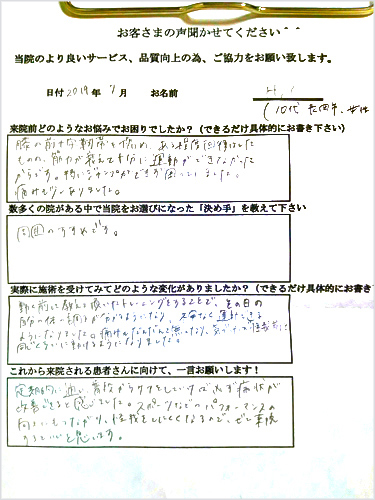 お客さまの声聞かせてください＾＾
当院のより良いサービス、品質向上の為、ご協力をお願い致します。
日付 2019年 7月 お名前 H.I
(10代 女性)
来院前どのようなお悩みでお困りでしたか？（できるだけ具体的にお書き下さい）
膝の前十字靭帯を、ある程度回復はした
ものの、筋力が衰えて十分に運動ができなかった
からです。特にジャンプができず困っていました。
痛みも少しありました。
数多くの院がある中で当院をお選びになった「決め手」を教えて下さい
周囲のすすめです。
実際に施術を受けてみてどのような変化がありましたか？（できるだけ具体的にお書き
動く前に教えて頂いたトレーニングをすることで、その日の
自分の体の調子が分かるようになり、運動できる
ようになりました。痛みもだんだんと無くなり、怪我前と
同じくらいに動けるようになりました。
これから来院される患者さんに向けて、一言お願いします！
定期的に通い、普段からケアをしていけば必ず症状が
改善できると感じました。スポーツなどのパフォーマンスの
向上にもつながり、怪我をしにくくなるので、ぜひ来院
するといいと思います。